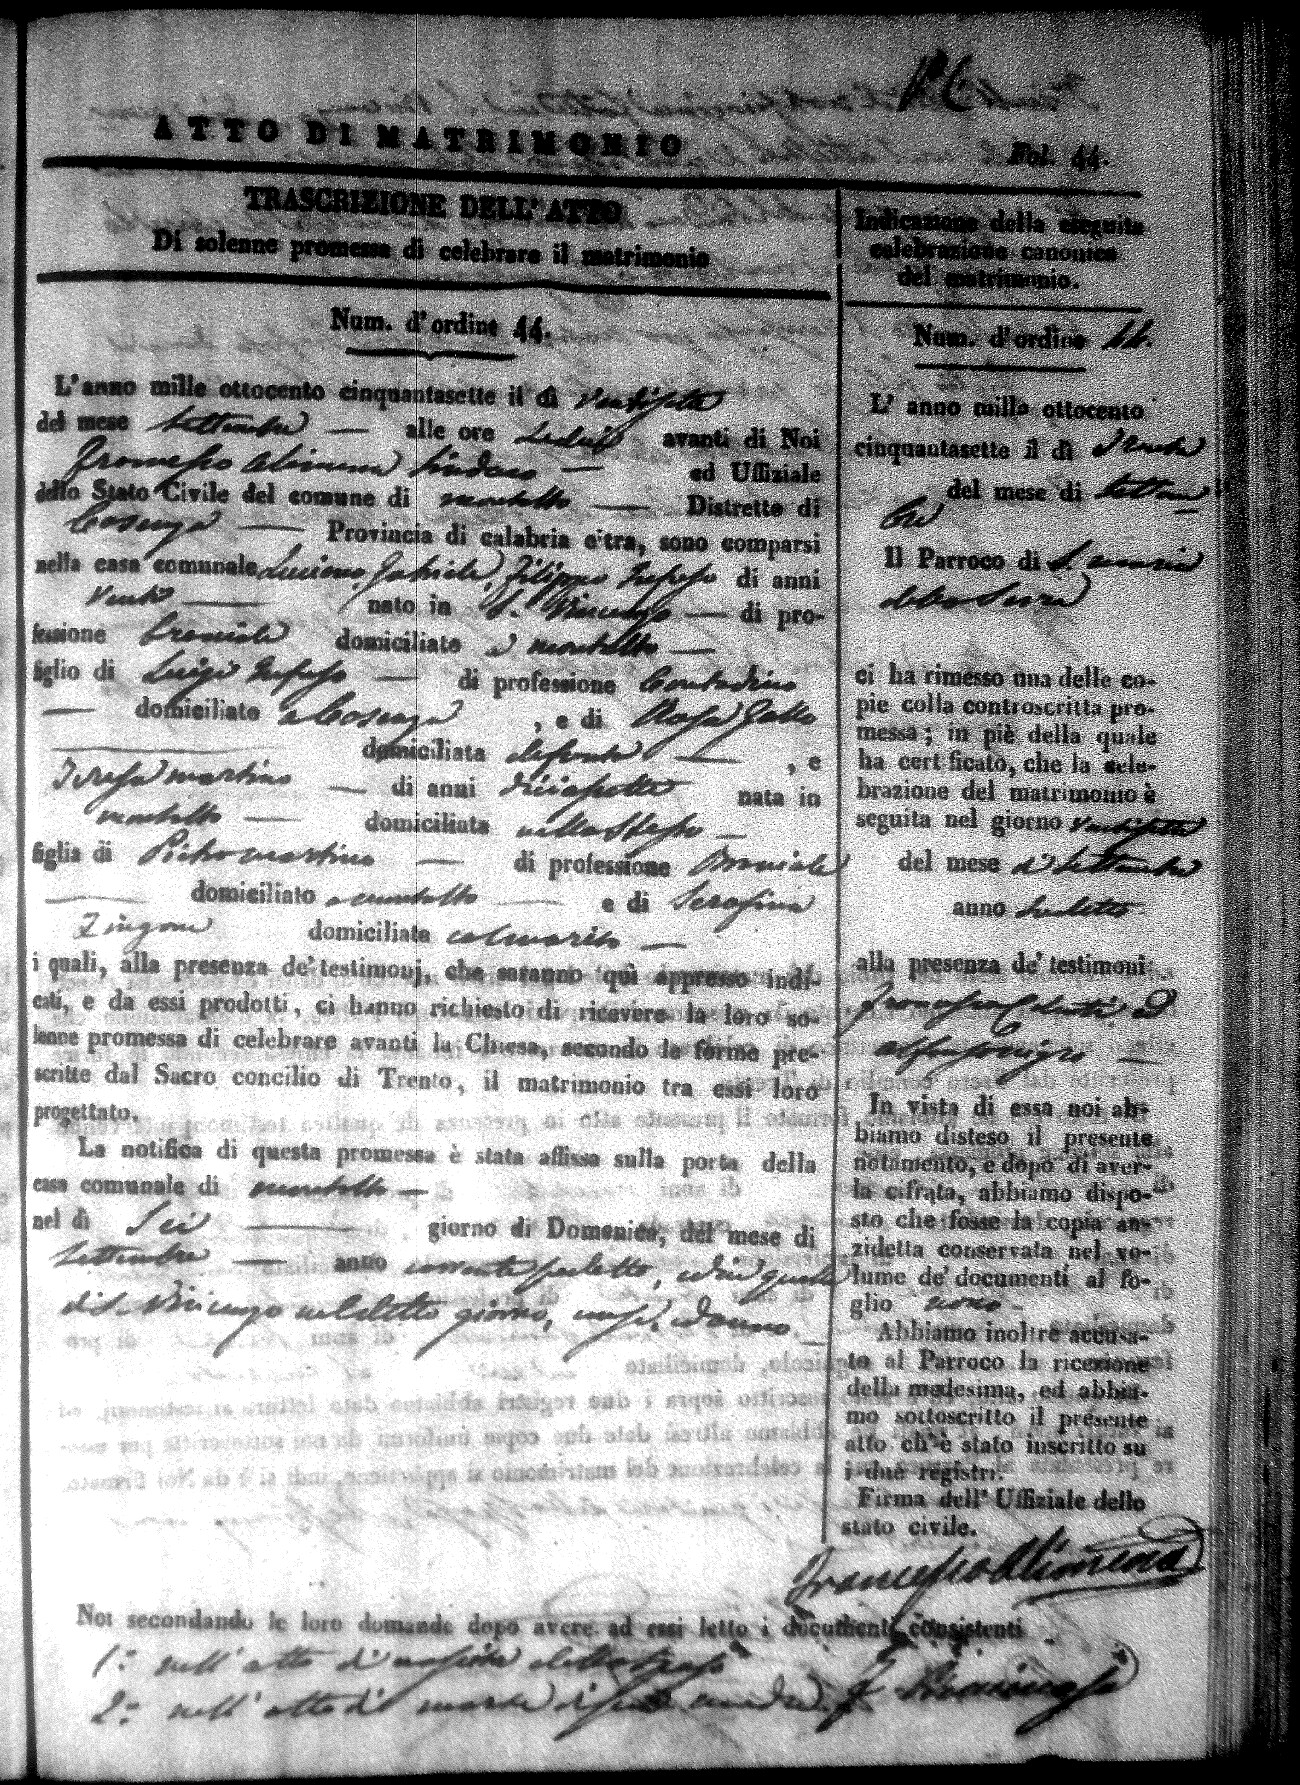 ATTO DI MATRIMONIO
Fol. 44.
TRASCRIZIONE DELL' ATTO
Di solenne promessa di celebrare il matrimonio
Num. d'ordine 44.
L'anno mille ottocento cinquantasette il dì Ventisette
del mese Settembre — alle ore Sedici avanti di Noi
Francesco Alimena Sindaco — ed Uffiziale
dello Stato Civile del comune di Montalto — Distretto di
Cosenza — Provincia di calabria citra, sono comparsi
nella casa comunale Luciano, Gabriele, Filippo di anni
Venti — nato in S. Vincenzo — di pro-
fessione Bracciale domiciliato a Montalto —
figlio di Luigi — di professione Contadino
— domiciliato a Cosenza , e di Rosa Gallo
domiciliata defunta — , e
Teresa Martino — di anni diciasette nata in
Montalto — domiciliata nella stessa —
figlia di Pietro Martino — di professione Bracciale
— domiciliato a Montalto — e di Serafina
Zingone domiciliata col marito —
i quali, alla presenza de' testimonj, che saranno quì appresso indi-
cati, e da essi prodotti, ci hanno richiesto di ricevere la loro so-
lenne promessa di celebrare avanti la Chiesa, secondo le forme pre-
scritte dal Sacro concilio di Trento, il matrimonio tra essi loro
progettato.
La notifica di questa promessa è stata affissa sulla porta della
casa comunale di Montalto —
nel dì Sei — giorno di Domenica, del mese di
Settembre — anno corrente suddetto, ed in quella
di S. Vincenzo nel detto giorno, mese, ed anno —
Indicazione della eseguita
celebrazione canonica
del matrimonio.
Num. d'ordine 44.
L' anno mille ottocento
cinquantasette il dì Trenta
del mese di Settem-
bre
Il Parroco di S. Maria
della Serra
ci ha rimesso una delle co-
pie colla controscritta pro-
messa; in piè della quale
ha certificato, che la cele-
brazione del matrimonio è
seguita nel giorno ventisette
del mese di Settembre
anno suddetto
alla presenza de' testimoni
Francesco ed
Alfonso Nigro —
In vista di essa noi ab-
biamo disteso il presente
notamento, e dopo di aver-
la cifrata, abbiamo dispo-
sto che fosse la copia an-
zidetta conservata nel vo-
lume de' documenti al fo-
glio nono -
Abbiamo inoltre accusa-
to al Parroco la ricezione
della medesima, ed abbia-
mo sottoscritto il presente
atto ch'è stato inscritto su
i due registri.
Firma dell' Uffiziale dello
stato civile.
Francesco Alimena
Noi secondando le loro domande dopo avere ad essi letto i documenti consistenti
1.° nell' atto di nascita dello sposo
2.° nell' atto di morte di sua madre.